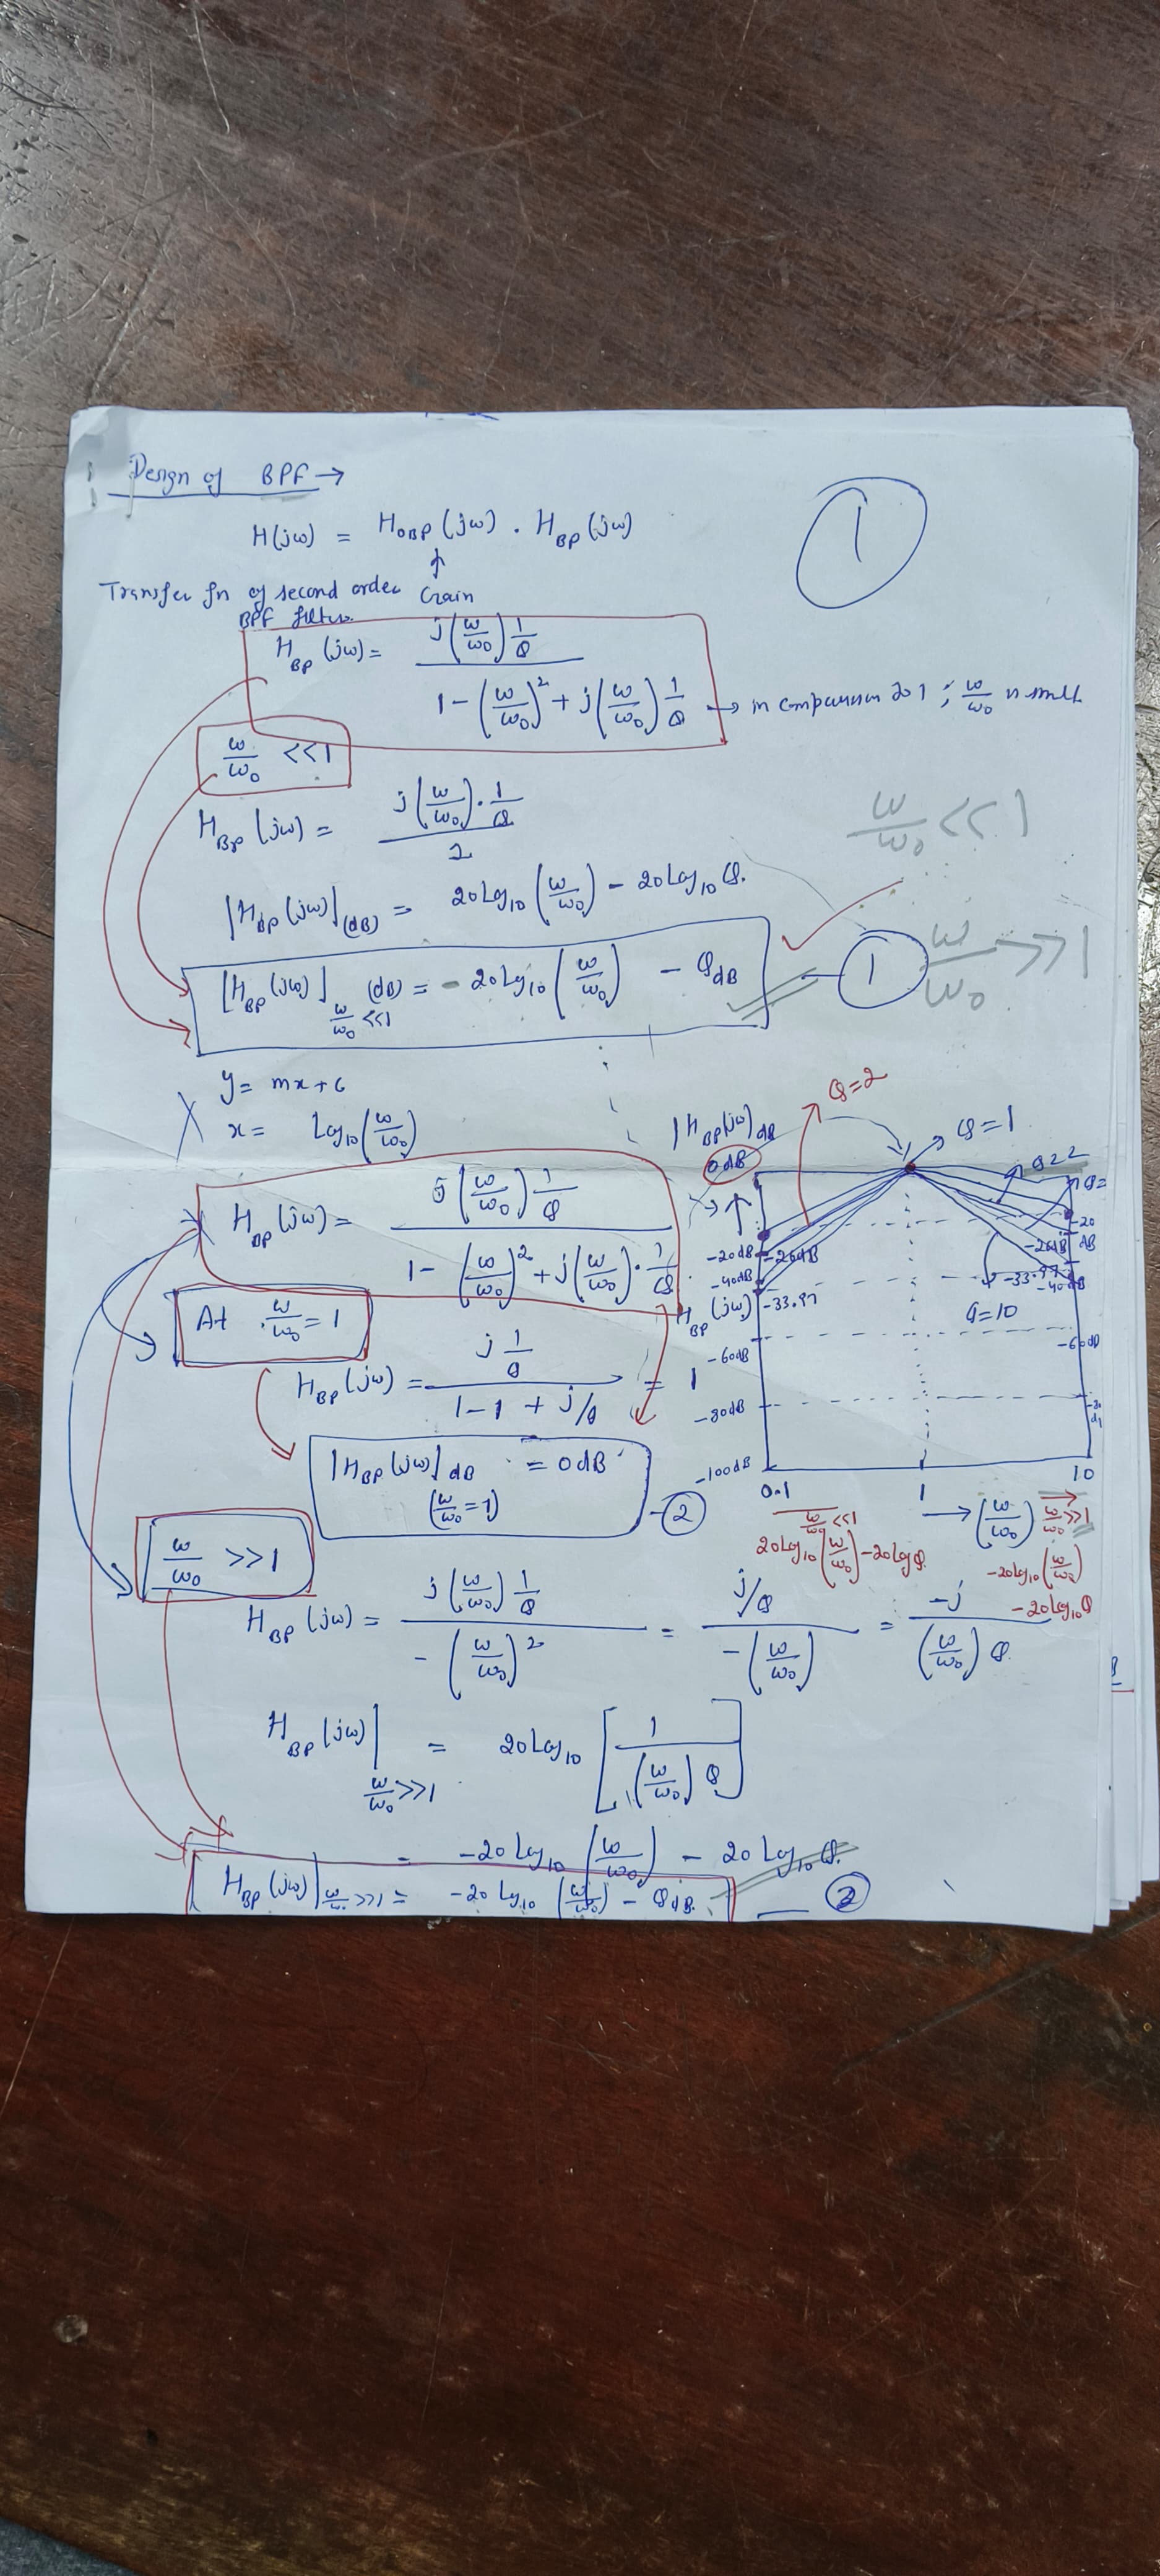 Design of BPF →
1
H(jω) = H₀BP(jω) . H_BP(jω)
↑
Transfer fn of second order Gain
BPF filter.
H_BP(jω) = j(ω/ω₀) 1/Q / 1-(ω/ω₀)² + j(ω/ω₀) 1/Q → in comparison to 1 ; ω/ω₀ is small
ω/ω₀ <<1
H_BP(jω) = j(ω/ω₀).1/Q / 1
ω/ω₀ << 1
|H_BP(jω)|(dB) = 20Log₁₀(ω/ω₀) - 20Log₁₀Q.
ω/ω₀ >>1
|H_BP(jω)| ω/ω₀ <<1 (dB) = - 20Log₁₀(ω/ω₀) - Q_dB — 1
y = mx + c
x = Log₁₀(ω/ω₀)
H_BP(jω) = j(ω/ω₀) 1/Q / 1- (ω/ω₀)² + j(ω/ω₀).1/Q
At ω/ω₀ = 1
H_BP(jω) = j 1/Q / 1-1 + j/Q = 1
|H_BP(jω)|dB = 0dB
(ω/ω₀ = 1)
-2
|H_BP(jω)|dB
Q=2
Q=1
Q=2
Q=
0dB
-20dB
-26dB
-40dB
-33.97
H_BP(jω)
-60dB
-80dB
-100dB
-20
dB
-26dB
-33.97
-40dB
Q=10
-60dB
-80
0.1
1
10
→ (ω/ω₀)
ω/ω₀ <<1
20Log₁₀(ω/ω₀) -20logQ
ω/ω₀ >>1
-20log₁₀(ω/ω₀)
-20Log₁₀Q
ω/ω₀ >>1
H_BP(jω) = j(ω/ω₀) 1/Q / -(ω/ω₀)² = j/Q / -(ω/ω₀) = -j / (ω/ω₀) Q.
H_BP(jω)| ω/ω₀ >>1 = 20Log₁₀ [1 / (ω/ω₀) Q]
= -20Log₁₀(ω/ω₀) - 20Log₁₀Q.
H_BP(jω)| ω/ω₀ >>1 = -20Log₁₀(ω/ω₀) - Q_dB. — 2